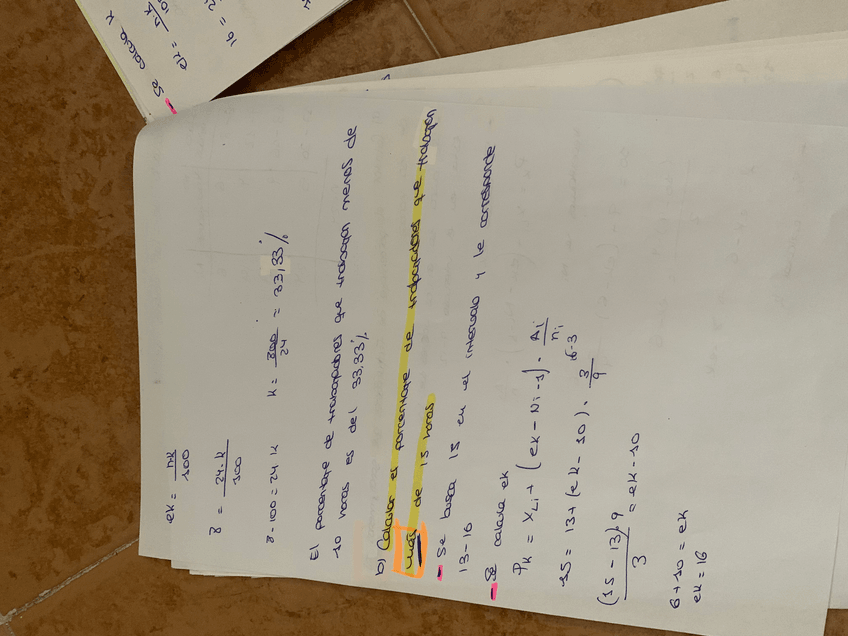 ek = nk / 100
8 = 24·k / 100
8·100 = 24 k    k = 800 / 24 = 33,33%
El porcentaje de trabajadores que trabajan menos de
10 horas es del 33,33%
b) Calcular el porcentaje de trabajadores que trabajan
más de 15 horas
- Se busca 15 en el intervalo y le corresponde
13-16
- Se calcula ek
Pk = XLi + (ek - Ni-1) · Ai / ni
16-3
15 = 13 + (ek - 10) · 3 / 9
(15 - 13)·9 / 3 = ek - 10
6 + 10 = ek
ek = 16
- Se calcula k
ek =
16 =